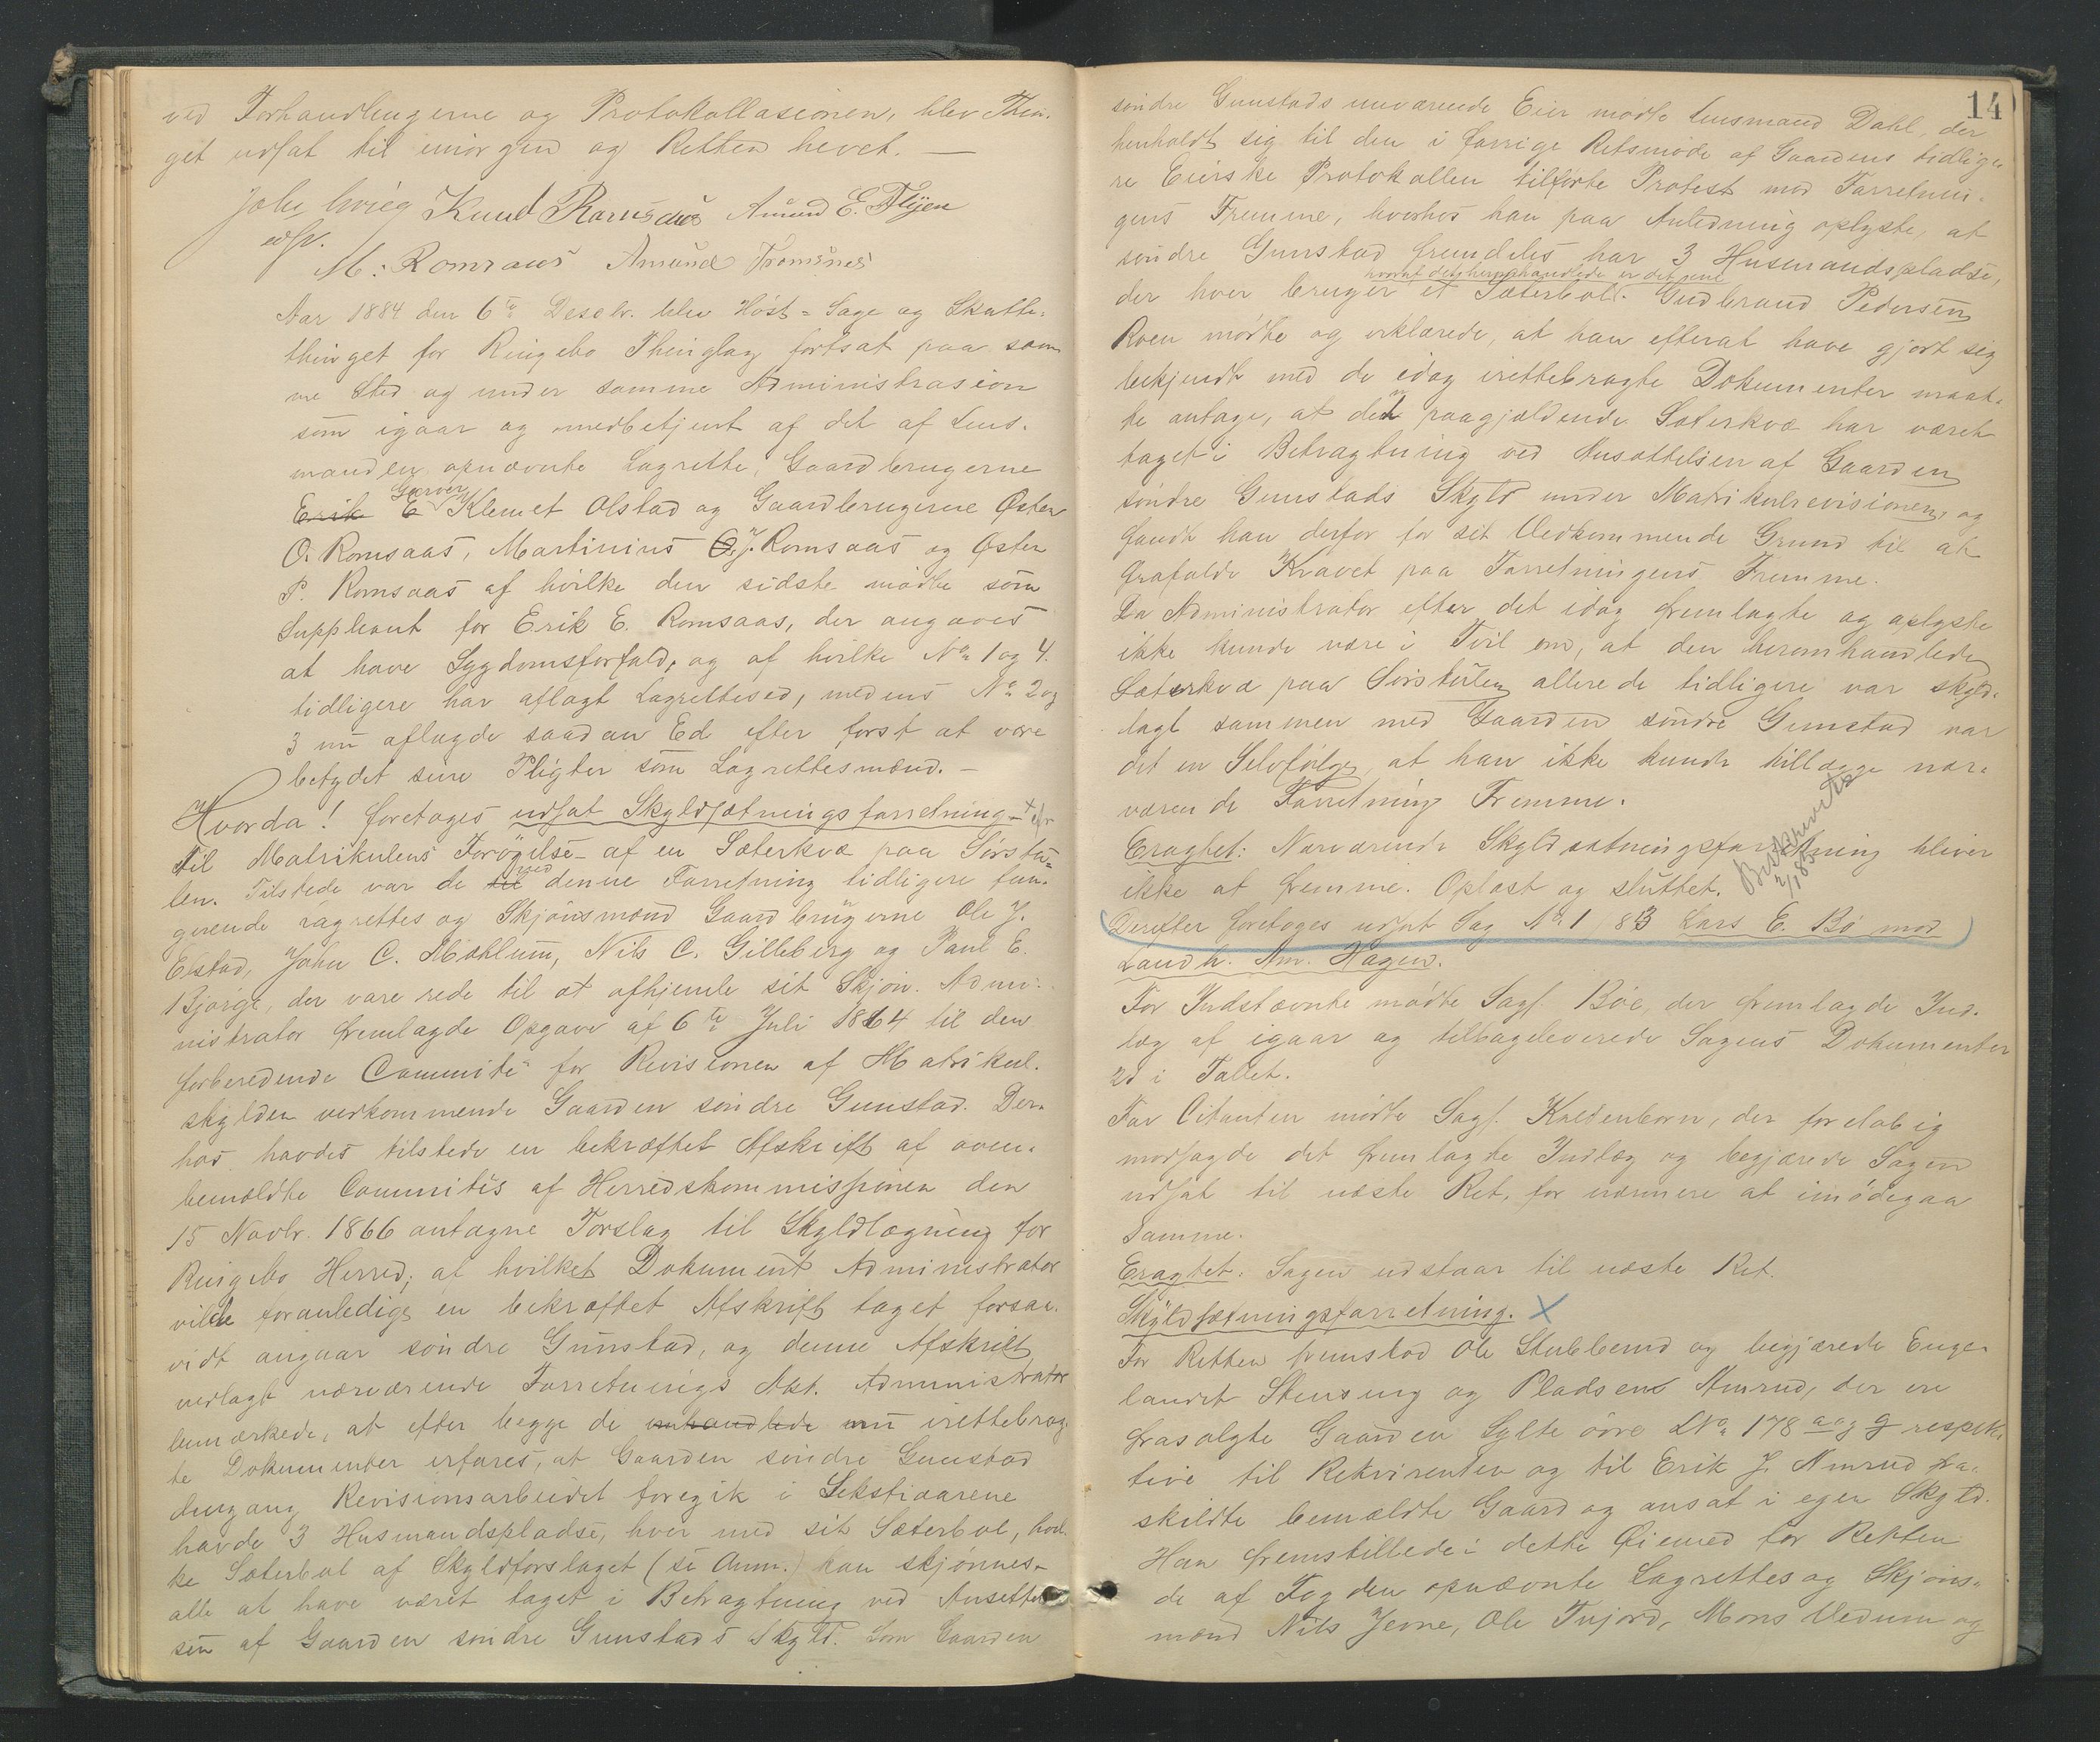 ved Forhandlingerne og Protokollasionen, blev Thin-
get udsat til imorgen og Retten hevet. —
Knud Ramsaas Amund E. Flÿen
M: Romsaas Amund Tromsnes
Aar 1884 den 6te Decbr. blev Höst-Sage og Skatte-
thinget for Ringebo Thinglag fortsat paa sam
me Sted og under samme Administrasion
som igaar og medbetjent af det af Lens-
manden opnævnte Lagrette, Gaardbrugerne
Garver
Erik E Klemet Olstad og Gaardbrugerne Østen
O. Romsaas, Martinius O. J. Romsaas og Østen
P. Romsaas af hvilke den sidste mödte som
Suppleant for Erik E. Romsaas, der angaves
at have Sygdomsforfald, og af hvilke No 1 og 4.
tidligere har aflagt Lagrettesed, medens No 2 og
3 nu aflagde saadan Ed efter først at være
betydet sine Pligter som Lagrettesmænd. —
Hvorda! foretoges udsat Skyldsætningsforretning – x
til Matrikulens Forögelse af en Sæterkvæ paa Sörstu-
len. Tilstede var de til ved denne Forretning tidligere fun-
gerende Lagrettes og Skjönsmænd Gaardbrugerne Ole J.
Elstad, John C. Mæhlum, Nils C. Gilleberg og Paul E.
Bjørge, der vare rede til at afhjemle sit Skjön. Admi-
nistrator fremlagde Opgave af 6te Juli 1864 til den
forberedende Committé for Revisionen af Matrikul-
skylden vedkommende Gaarden söndre Gunstad. Der-
hos havdes tilstede en bekræftet Afskrift af oven-
bemældte Committés af Herredskommissionen den
15 Novbr. 1866 antagne Forslag til Skyldlægning for
Ringebo Herred; af hvilket Dokument Administrator
vilde foranledige en bekræftet Afskrift taget forsaa-
vidt angaar söndre Gunstad, og denne Afskrift
vedlagt nærværende Forretnings Akt. Administrator
bemærkede, at efter begge de omhandlede nu irettebrag-
te Dokumenter erfares, at Gaarden söndre Gunstad
dengang Revisionsarbeidet foregik i Sekstiaarene
havde 3 Husmandspladse, hver med sit Sæterbol, hvil-
ke Sæterbol af Skyldforslaget (se Anm.) kan skjønnes
alle at have været taget i Betragtning ved Ansættel
sen af Gaarden söndre Gunstads Skyld. Som Gaarden
14
söndre Gunstads nuværende Eier mødte Lensmand Dahl, der
henholdt sig til den i forrige Retsmöde af Gaardens tidlige-
re Eierske Protokollen tilførte Protest mod Forretnin-
gens Fremme, hvorhos han paa Anledning oplyste, at
söndre Gunstad fremdeles har 3 Husmandspladse,
hvoraf det heromhandlede er det ene
der hver bruger et Sæterbol. Gudbrand Pedersen
Roen mødte og erklærede, at han efterat have gjort sig
bekjendt med de idag irettebragte Dokumenter maat-
te antage, at den paagjældende Sæterkvæ har været
taget i Betragtning ved Ansættelsen af Gaarden
söndre Gunstads Skyld under Matrikulrevisionen, og
fandt han derfor for sit Vedkommende Grund til at
frafalde Kravet paa Forretningens Fremme.
Da Administrator efter det idag fremlagte og oplyste
ikke kunde være i Tvil om, at den heromhandlede
Sæterkvæ paa Sörstulen allerede tidligere var skyld-
lagt sammen med Gaarden söndre Gunstad var
det en Selvfölge, at han ikke kunde tillægge nær-
værende Forretning Fremme.
Eragtet: Nærværende Skyldsætningsforretning bliver
ikke at fremme. Oplæst og sluttet.
Derefter foretoges udsat Sag No 1 / 83 Lars E. Bö mod
Landh. Am. Hagen.
For Indstævnte mødte Sagf. Böe, der fremlagde Ind-
læg af igaar og tilbageleverede Sagens Dokumenter
2d i Tallet.
For Citanten mødte Sagf. Kaltenborn, der foreløbig
modsagde det fremlagte Indlæg og begjærede Sagen
udsat til næste Ret, for nærmere at imödegaa
Samme.
Eragtet: Sagen udstaar til næste Ret.
Skyldsætningsforretning. X
For Retten fremstod Ole Stubberud og begjærede Enge-
landet Stenseng og Pladsen Amrud, der ere
frasolgte Gaarden Sylte övre LNo 178 a og g respek-
tive til Rekvirenten og til Erik J. Amrud fra-
skildte bemældte Gaard og ansat i egen Skyld.
Han fremstillede i dette Øiemed for Retten
de af Fogden opnævnte Lagrettes og Skjöns-
mænd Nils Jevne, Ole Tujord, Mons Vedum og